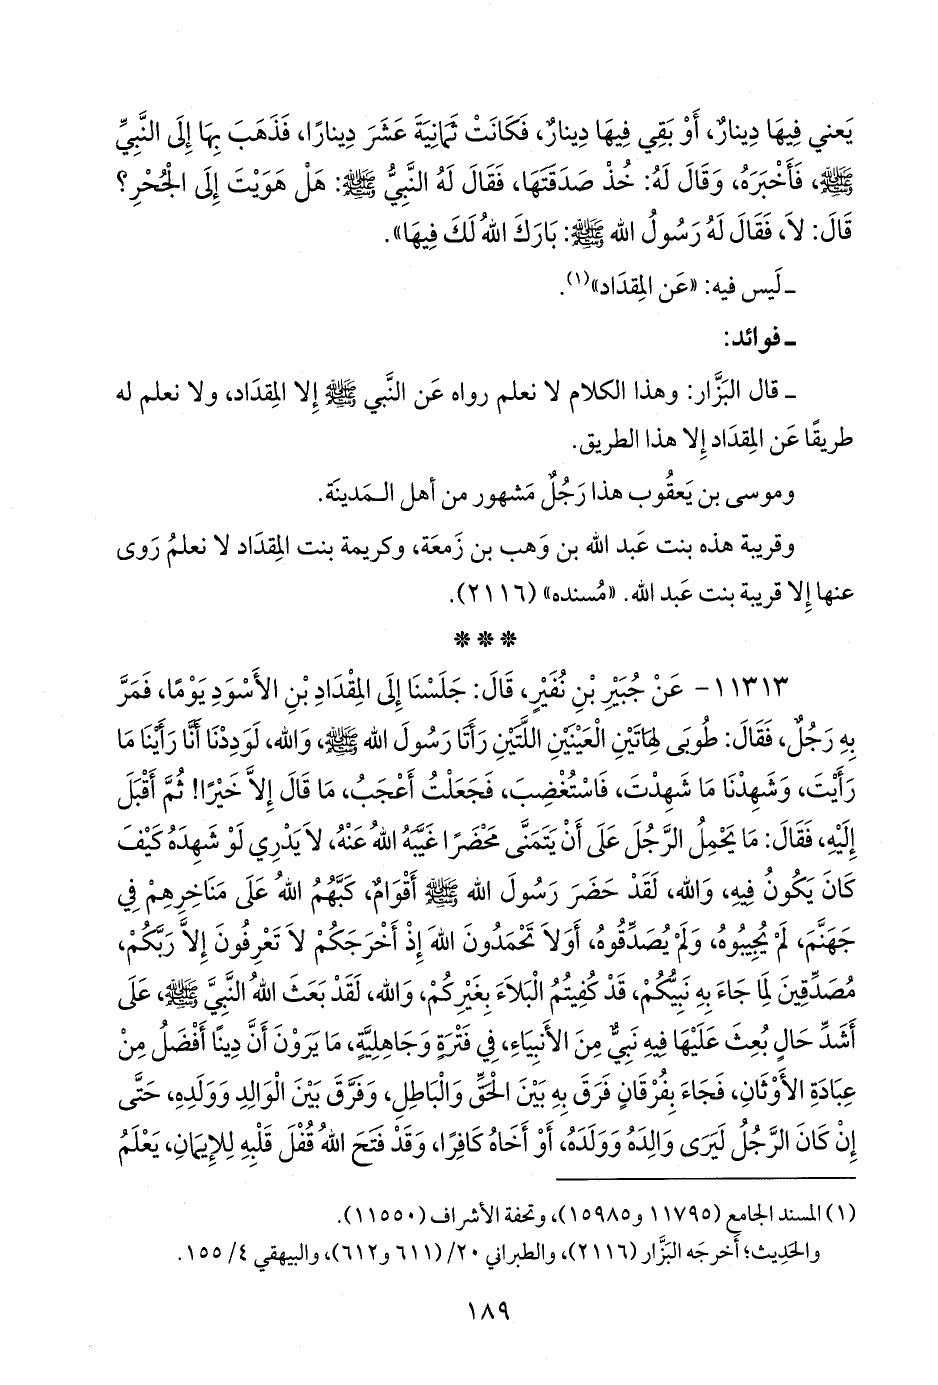 يَعني فِيهَا دِينارٌ، أَوْ بَقِي فِيهَا دِينارٌ، فَكَانَتْ ثَمَانِيَةَ عَشَرَ دِينارًا، فَذَهَبَ بِهَا إِلَى النَّبِيِّ
ﷺ، فَأَخْبَرَهُ، وَقَالَ لَهُ: خُذْ صَدَقَتَهَا، فَقَالَ لَهُ النَّبِيُّ ﷺ: هَلْ هَوَيْتَ إِلَى الْجُحْرِ؟
قَالَ: لاَ، فَقَالَ لَهُ رَسُولُ الله ﷺ: بَارَكَ اللهُ لَكَ فِيهَا».
ـ لَيس فيه: «عَن المِقدَاد»(١).
ـ فوائد:
ـ قال البَزَّار: وهذا الكلام لا نعلم رواه عَن النَّبي ﷺ إِلا المِقدَاد، ولا نعلم له
طريقًا عَن المِقدَاد إِلا هذا الطريق.
وموسى بن يَعقُوب هذا رَجُلٌ مَشهور من أهل الـمَدينَة.
وقريبة هذه بنت عَبد الله بن وَهب بن زَمعَة، وكريمة بنت المِقدَاد لا نعلمُ رَوى
عنها إِلا قريبة بنت عَبد الله. «مُسنده» (٢١١٦).
***
١١٣١٣- عَنْ جُبَيْرِ بْنِ نُفَيْرٍ، قَالَ: جَلَسْنَا إِلَى المِقْدَادِ بْنِ الأَسْوَدِ يَوْمًا، فَمَرَّ
بِهِ رَجُلٌ، فَقَالَ: طُوبَى لِهَاتَيْنِ الْعَيْنَيْنِ اللَّتَيْنِ رَأَتَا رَسُولَ الله ﷺ، وَالله، لَوَدِدْنَا أَنَّا رَأَيْنَا مَا
رَأَيْتَ، وَشَهِدْنَا مَا شَهِدْتَ، فَاسْتُغْضِبَ، فَجَعَلْتُ أَعْجَبُ، مَا قَالَ إِلاَّ خَيْرًا! ثُمَّ أَقْبَلَ
إِلَيْهِ، فَقَالَ: مَا يَحْمِلُ الرَّجُلَ عَلَى أَنْ يَتَمَنَّى مَحْضَرًا غَيَّبَهُ اللهُ عَنْهُ، لاَ يَدْرِي لَوْ شَهِدَهُ كَيْفَ
كَانَ يَكُونُ فِيهِ، وَالله، لَقَدْ حَضَرَ رَسُولَ الله ﷺ أَقْوَامٌ، كَبَّهُمُ اللهُ عَلَى مَنَاخِرِهِمْ فِي
جَهَنَّمَ، لَمْ يُجِيبُوهُ، وَلَمْ يُصَدِّقُوهُ، أَوَلاَ تَحْمَدُونَ اللهَ إِذْ أَخْرَجَكُمْ لاَ تَعْرِفُونَ إِلاَّ رَبَّكُمْ،
مُصَدِّقِينَ لِمَا جَاءَ بِهِ نَبِيُّكُمْ، قَدْ كُفِيتُمُ الْبَلاَءَ بِغَيْرِكُمْ، وَالله، لَقَدْ بَعَثَ اللهُ النَّبِيَّ ﷺ، عَلَى
أَشَدِّ حَالٍ بُعِثَ عَلَيْهَا فِيهِ نَبِيٌّ مِنَ الأَنْبِيَاءِ، فِي فَتْرَةٍ وَجَاهِلِيَّةٍ، مَا يَرَوْنَ أَنَّ دِينًا أَفْضَلُ مِنْ
عِبَادَةِ الأَوْثَانِ، فَجَاءَ بِفُرْقَانٍ فَرَقَ بِهِ بَيْنَ الْحَقِّ وَالْبَاطِلِ، وَفَرَّقَ بَيْنَ الْوَالِدِ وَوَلَدِهِ، حَتَّى
إِنْ كَانَ الرَّجُلُ لَيَرَى وَالِدَهُ وَوَلَدَهُ، أَوْ أَخَاهُ كَافِرًا، وَقَدْ فَتَحَ اللهُ قُفْلَ قَلْبِهِ لِلإِيمَانِ، يَعْلَمُ
(١) المسند الجامع (١١٧٩٥ و١٥٩٨٥)، وتحفة الأشراف (١١٥٥٠).
والحَدِيث؛ أَخرجَه البَزَّار (٢١١٦)، والطبراني ٢٠/ (٦١١ و٦١٢)، والبيهقي ٤/ ١٥٥.
١٨٩